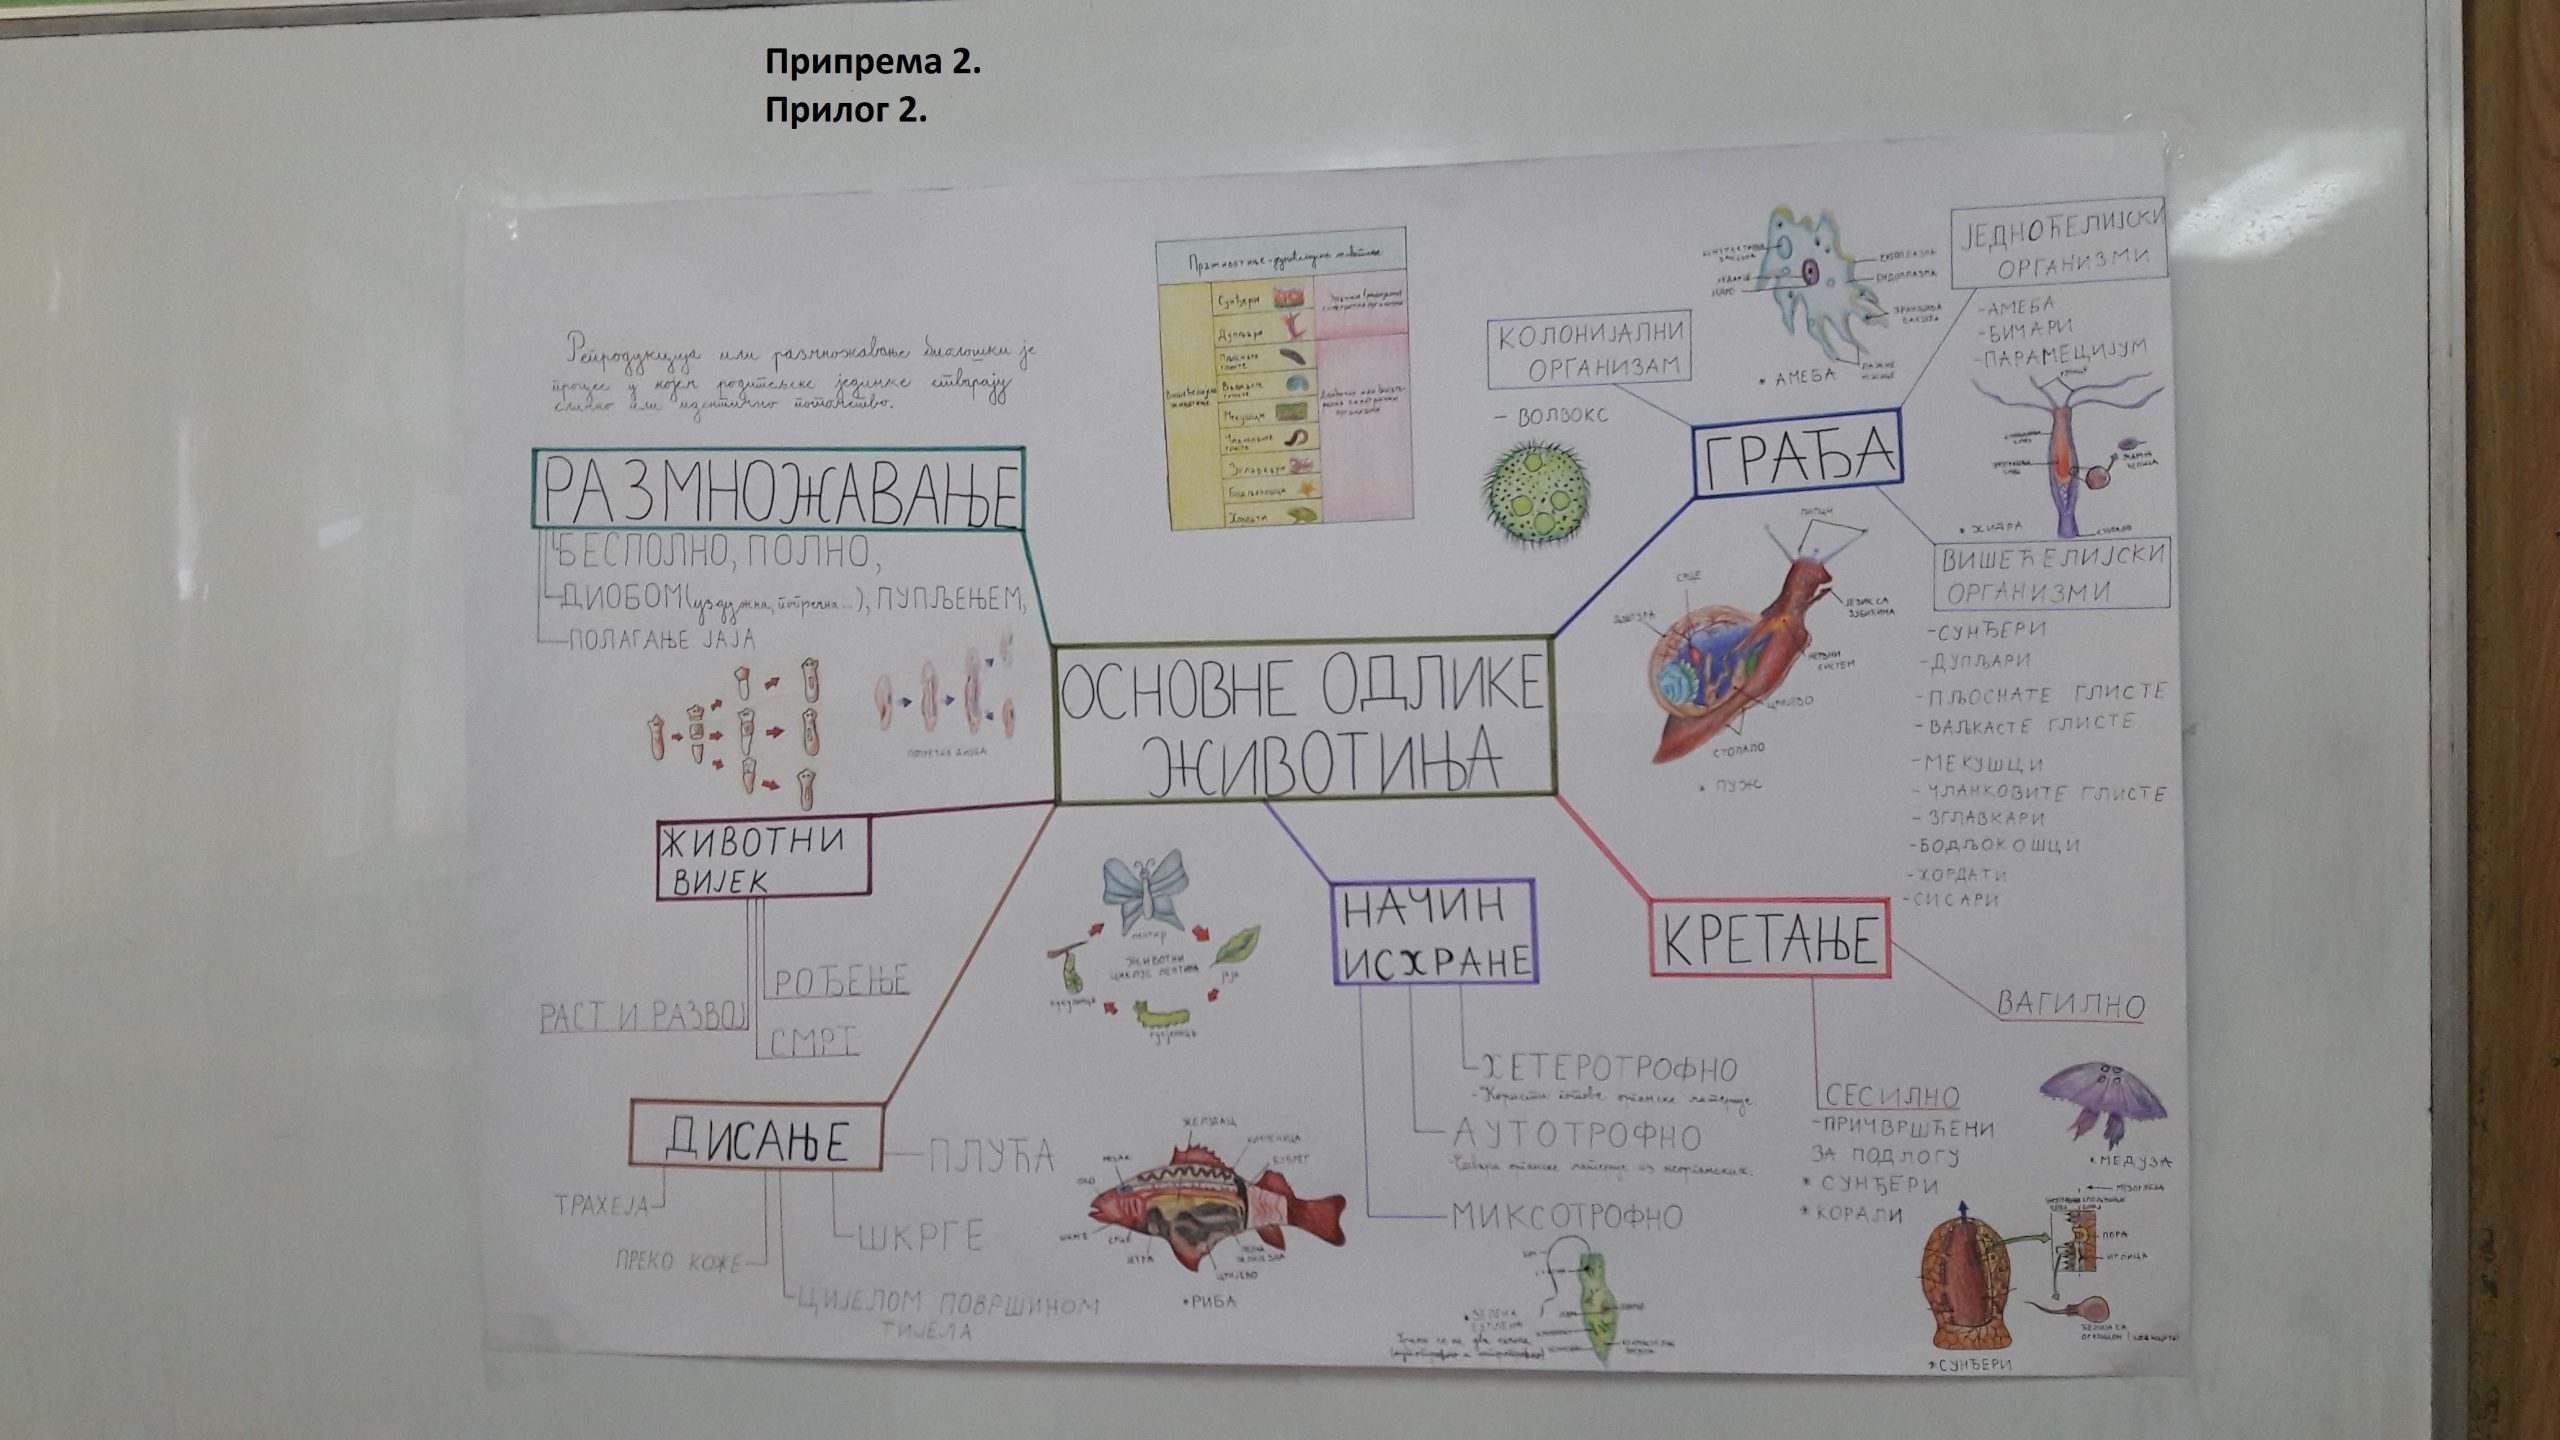 Припрема 2.
Прилог 2.
Репродукција или размножавање биолошки је
процес у којем родитељске јединке стварају
слично или идентично потомство.
РАЗМНОЖАВАЊЕ
БЕСПОЛНО, ПОЛНО,
ДИОБОМ (уздужна, попречна...), ПУПЉЕЊЕМ,
ПОЛАГАЊЕ ЈАЈА
ПОПРЕЧНА ДИОБА
Сунђери
Дупљари
Пљоснате
глисте
Ваљкасте
глисте
Мекушци
Чланковите
глисте
Зглавкари
Бодљокошци
Хордати
Вишећелијске
животиње
КОЛОНИЈАЛНИ
ОРГАНИЗАМ
- ВОЛВОКС
ЈЕДАРЦЕ
ЈЕДРО
ЕКТОПЛАЗМА
ЕНДОПЛАЗМА
* АМЕБА
ЈЕДНОЋЕЛИЈСКИ
ОРГАНИЗМИ
-АМЕБА
-БИЧАРИ
-ПАРАМЕЦИЈУМ
ГРАЂА
* ХИДРА
СТОПАЛО
ВИШЕЋЕЛИЈСКИ
ОРГАНИЗМИ
-СУНЂЕРИ
-ДУПЉАРИ
-ПЉОСНАТЕ ГЛИСТЕ
-ВАЉКАСТЕ ГЛИСТЕ
-МЕКУШЦИ
-ЧЛАНКОВИТЕ ГЛИСТЕ
-ЗГЛАВКАРИ
-БОДЉОКОШЦИ
-ХОРДАТИ
-СИСАРИ
ПИПЦИ
СРЦЕ
ЉУШТУРА
ЈЕЗИК СА
ЗУБИЋИМА
НЕРВНИ
СИСТЕМ
ЦРИЈЕВО
СТОПАЛО
* ПУЖ
ОСНОВНЕ ОДЛИКЕ
ЖИВОТИЊА
ЖИВОТНИ
ВИЈЕК
РОЂЕЊЕ
РАСТ И РАЗВОЈ
СМРТ
лептир
ЖИВОТНИ
ЦИКЛУС ЛЕПТИРА
јаја
гусјеница
НАЧИН
ИСХРАНЕ
ХЕТЕРОТРОФНО
-Користи готове органске материје
АУТОТРОФНО
-Ствара органске материје из неорганских.
МИКСОТРОФНО
КРЕТАЊЕ
ВАГИЛНО
СЕСИЛНО
-ПРИЧВРШЋЕНИ
ЗА ПОДЛОГУ
* СУНЂЕРИ
* КОРАЛИ
*МЕДУЗА
ДИСАЊЕ
ПЛУЋА
ТРАХЕЈА
ШКРГЕ
ПРЕКО КОЖЕ
ЦИЈЕЛОМ ПОВРШИНОМ
ТИЈЕЛА
ЖЕЛУДАЦ
БУБРЕГ
МОЗАК
ОКО
ШКРГЕ
СРЦЕ
ЈЕТРА
ЦРИЈЕВО
*РИБА
ПОРА
ИГЛИЦА
*СУНЂЕРИ